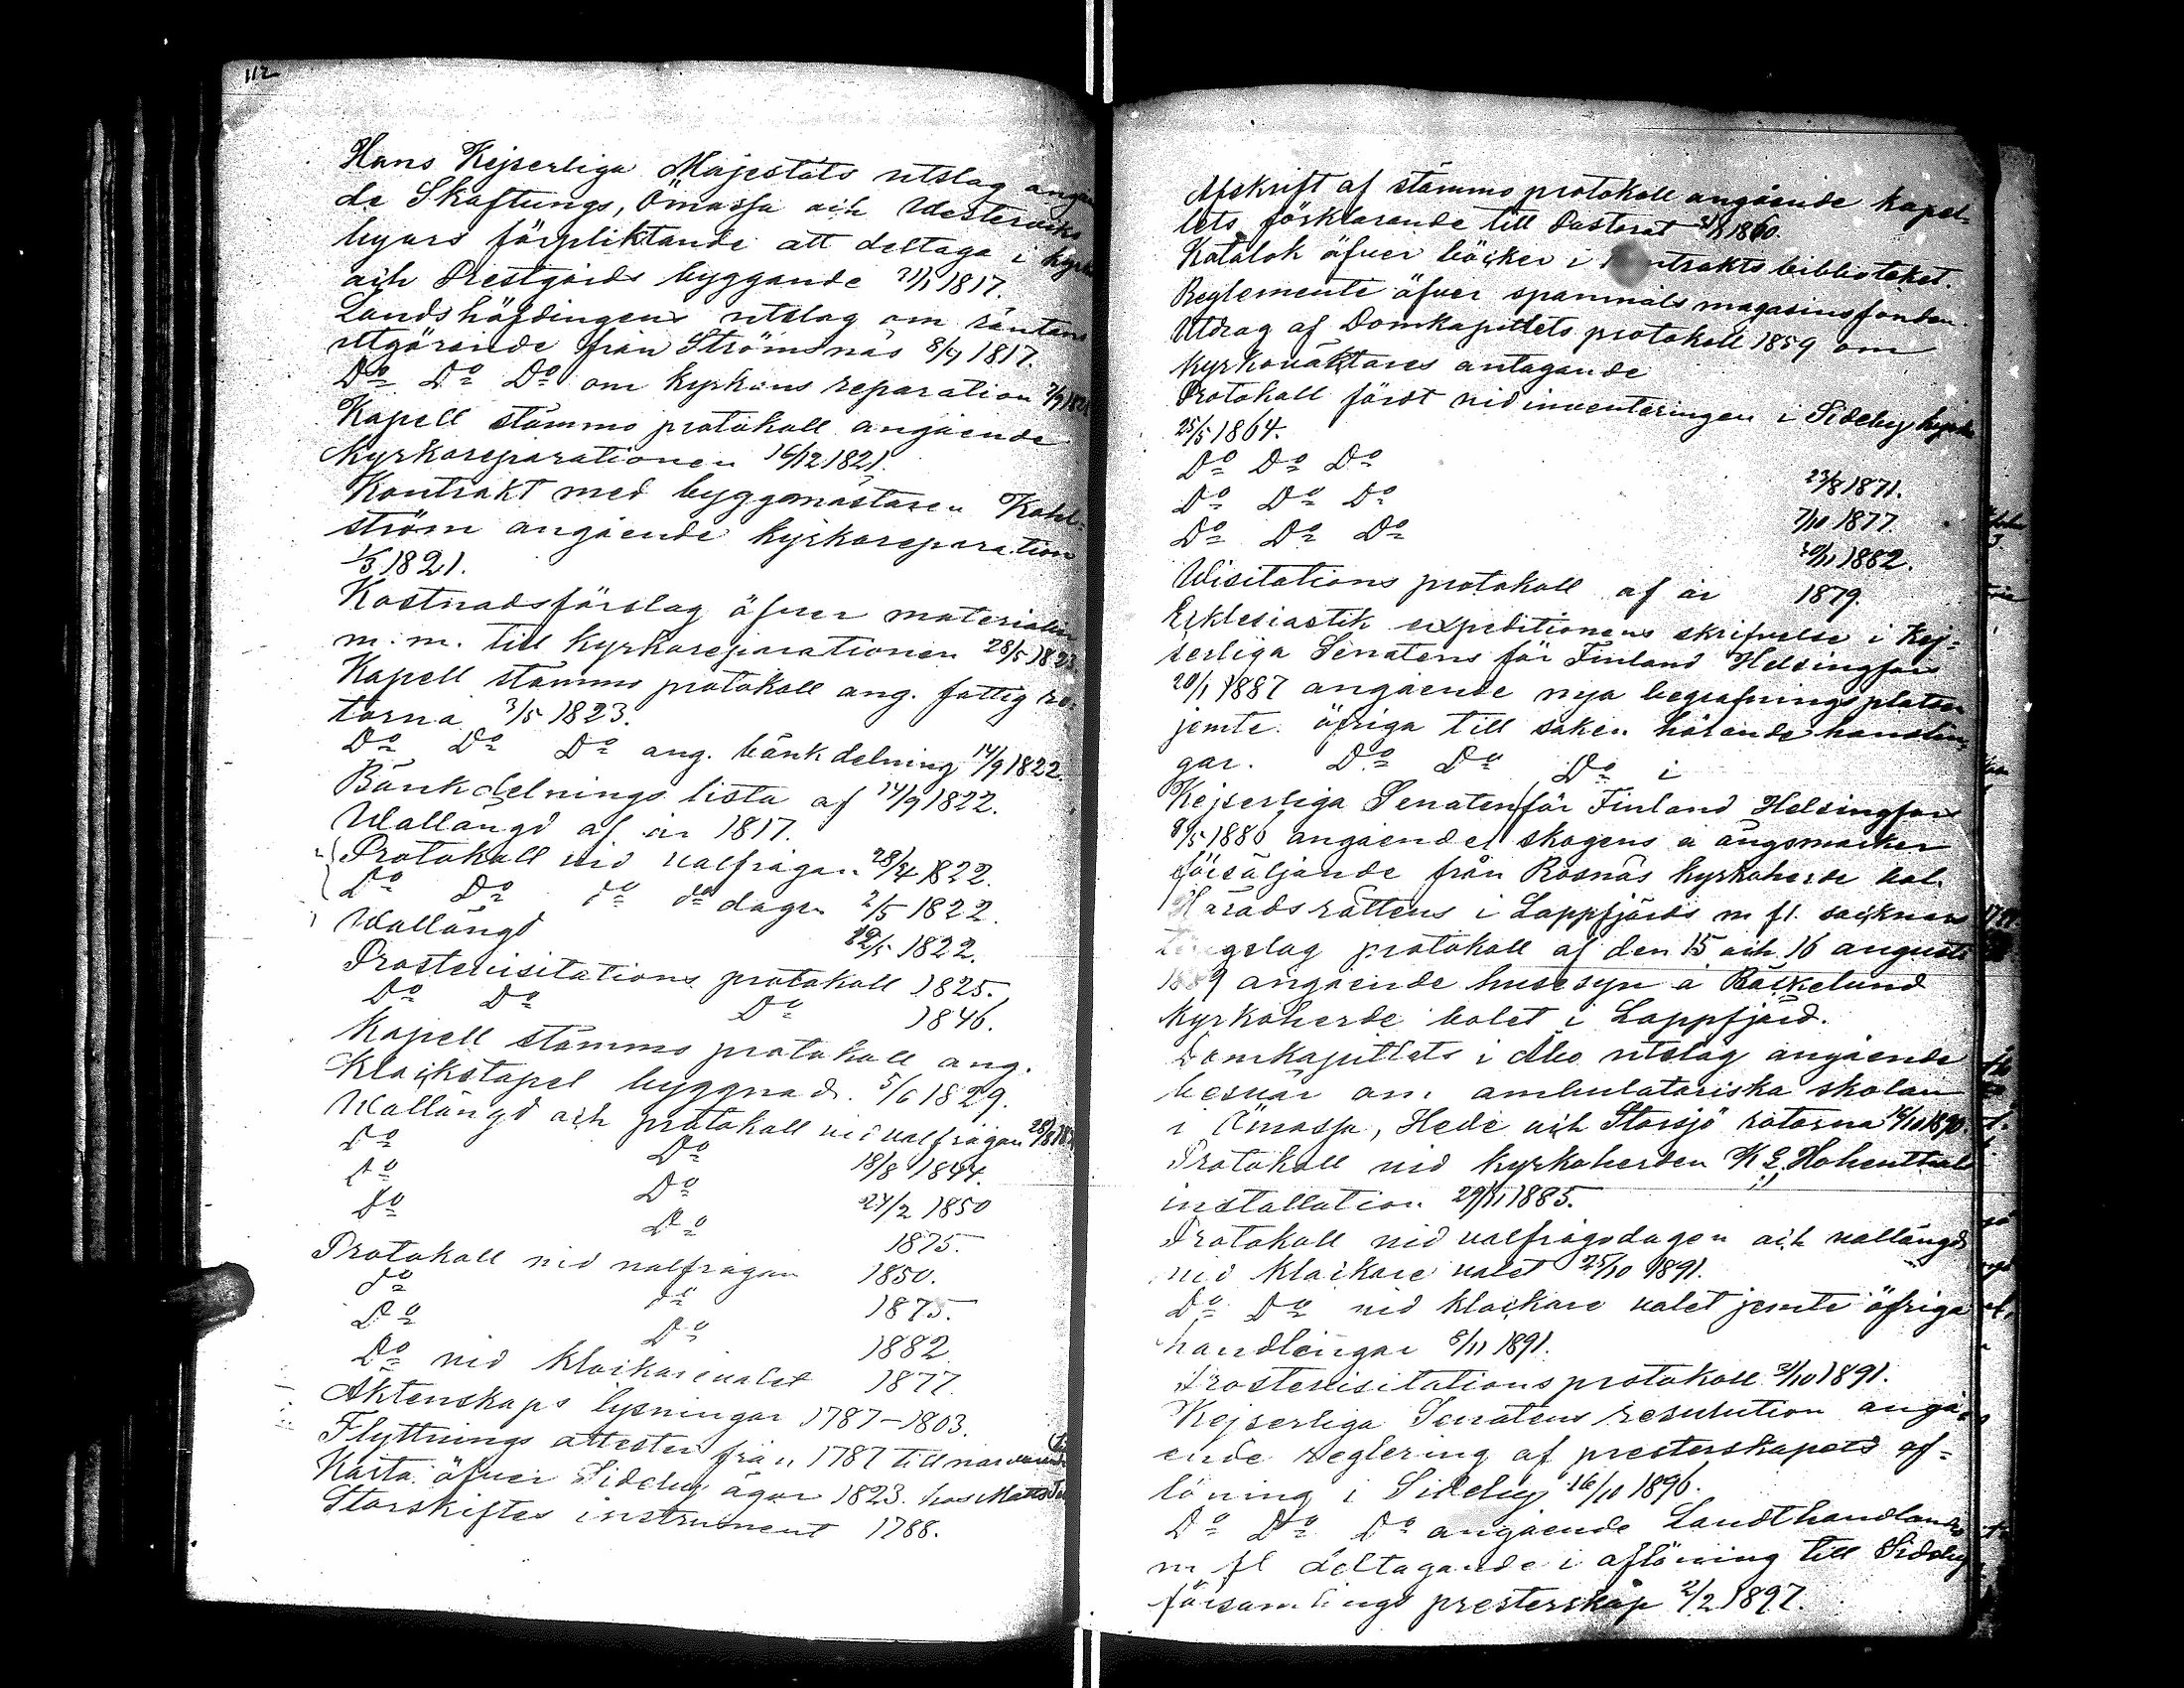 112
Hans Kejserliga Majestäts utslag angåen
de Skaftungs, Ömossa och Westerviks
byars förpliktande att deltaga i kyrko
och Prestgårds byggande 21/1 1817.
Landshöfdingens utslag om räntans
utgörande från Strömsnäs 8/7 1817.
Do Do Do om kyrkans reparation
Kapell stämmo protokoll angående
Kyrkoreparationen 16/12 1821.
Kontrakt med byggmästaren Kahl=
ström angående kyrkoreparation
1/3 1821.
Kostnadsförslag öfver materialier
m. m. till kyrkoreparationen 28/5 1823
Kapell stämmo protokoll ang. fattig ro=
tarna 3/5 1823.
Do Do Do ang. bänkdelning 14/9 1822.
Bänkdelnings lista af 14/9 1822.
Wallängd af år 1817.
Protokoll vid valfrågan 28/4 1822.
Do Do do do dagen 2/5 1822.
Wallängd 1822.
Prostevisitations protokoll 1825.
Do Do Do 1846.
Kapell stämmo protokoll ang.
Klockstapel byggnad. 5/6 1829.
Wallängd och protokoll vid valfrågan
Do Do 18/8 1844.
Do Do 24/2 1850
Do Do 1875.
Protokoll vid valfrågan 1850.
do do 1875.
Do Do 1882
Do vid klockarevalet 1877
Äktenskaps lysningar 1787-1803.
Flyttnings attester från 1787 till närvarande
Karta öfver Sideby ägor 1823. hos Matts
Storskiftes instrument 1788.
Afskrift af stämmo protokoll angående kapel=
lets förklarande till Pastorat 1860.
Katalok öfver böcker i Kontraktsbiblioteket.
Reglemente öfver spanmåls magasinsfonden.
Utdrag af Domkapitlets protokoll 1859 om
kyrkoväktares antagande
Protokoll fördt vid inventeringen i Sideby kyrka
25/5 1864.
Do Do Do 23/8 1871.
Do Do Do 7/10 1877.
Do Do Do 20/11 1882.
Wisitations protokoll af år 1879.
Ecklesiastik expeditionens skrifvelse i Kej=
serliga Senatens för Finland Helsingfors
20/1 1887 angående nya begrafningsplatsen
jemte öfriga till saken hörande handlin=
gar. Do Do Do i
Kejserliga Senaten för Finland Helsingfors
8/5 1880 angående skogens å ängsmarken
försäljande från Rosnäs kyrkoherde bol.
Häradsrättens i Lappfjärds m fl. socknars
tingslag protokoll af den 15 och 16 augusti
1889 angående husesyn å Bäckelund
kyrkoherde bolet i Lappfjärd.
Domkapitlets i Åbo utslag angående
besvär om ambulatoriska skolan
i Ömossa, Hede och Storsjö rotarna 1890.
Protokoll vid kyrkoherden K E Hohenthals
installation 29/11 1885.
Protokoll vid valfrågodagen och vallängd
vid klockare valet 25/10 1891.
Do Do vid klockare valet jemte öfriga
handlingar 8/11 1891.
Prostevisitationsprotokoll 3/10 1891.
Kejserliga Senatens resulution angå=
ende reglering af presterskapets af=
löning i Sideby 16/10 1896.
Do Do Do angående Landthandlande
m fl deltagande i aflöning till Sideby
församlings presterskap 2/2 1897.